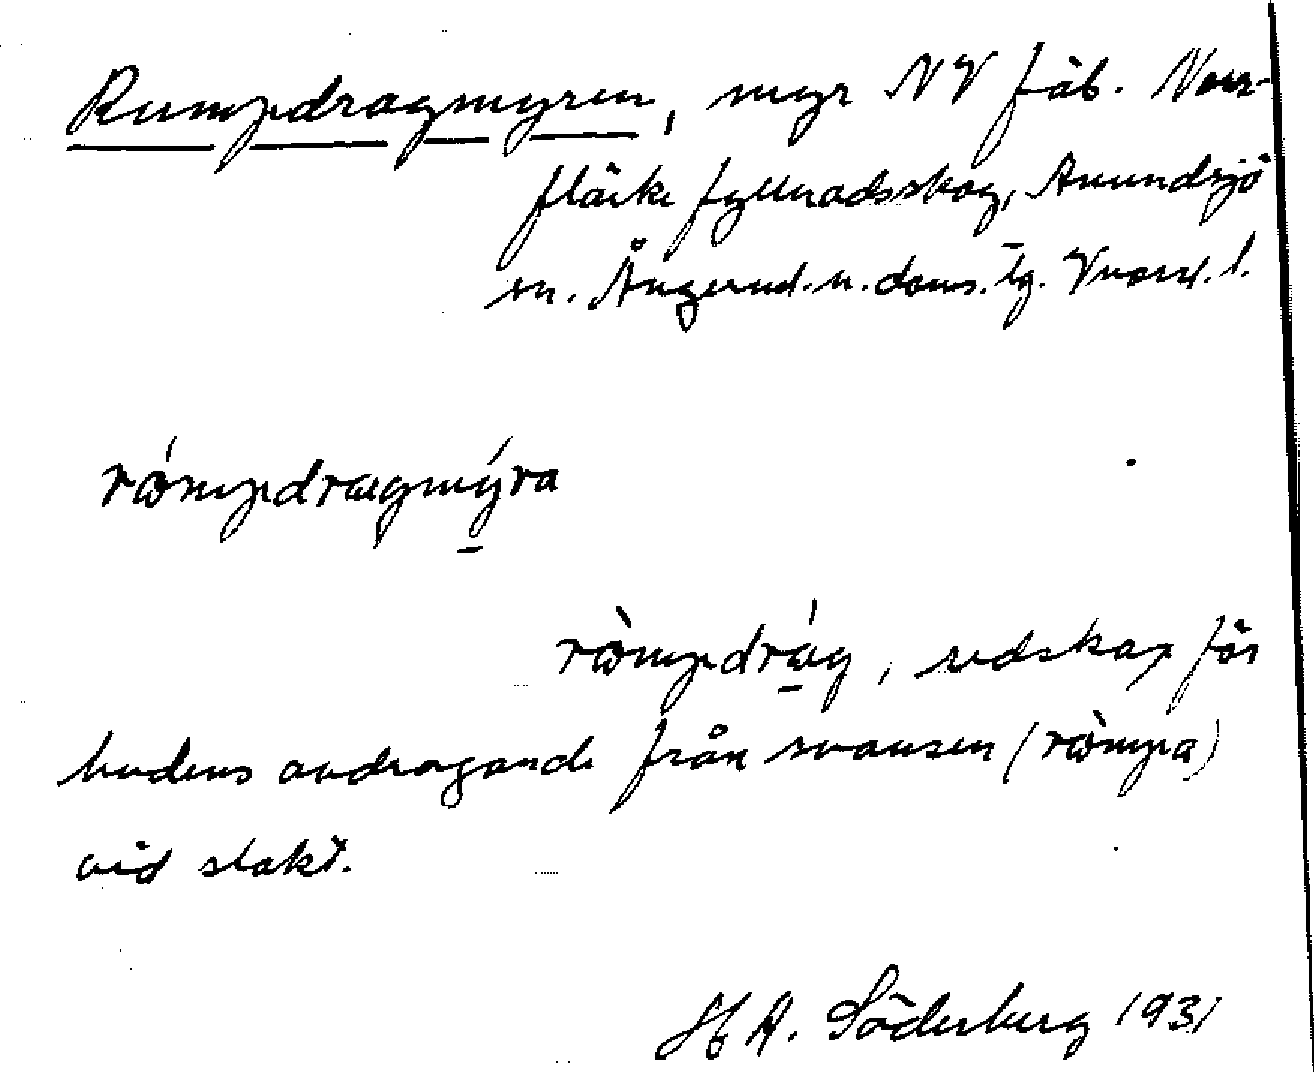 Rumpdragmyren, myr NV fäb. Norr-
fläke fyllnadsskog, Anundsjö
sn. Ångerml. n. doms. tg. Vnorrl. l.
ròmpdragmýra
ròmpdrág, redskap för
hudens avdragande från svansen (ròmpa)
vid slakt.
H A. Söderberg 1931